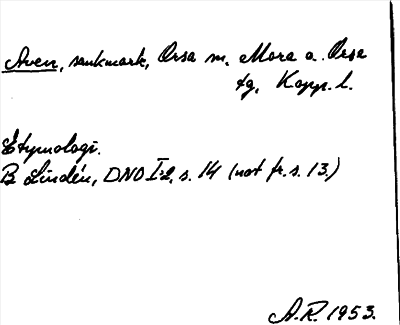 Aven, sankmark, Orsa sn, Mora o. Orsa
tg, Kopp. l.
Etymologi.
B Lindén, DNO I:2, s. 14 (not fr. s. 13.)
A.R. 1953.